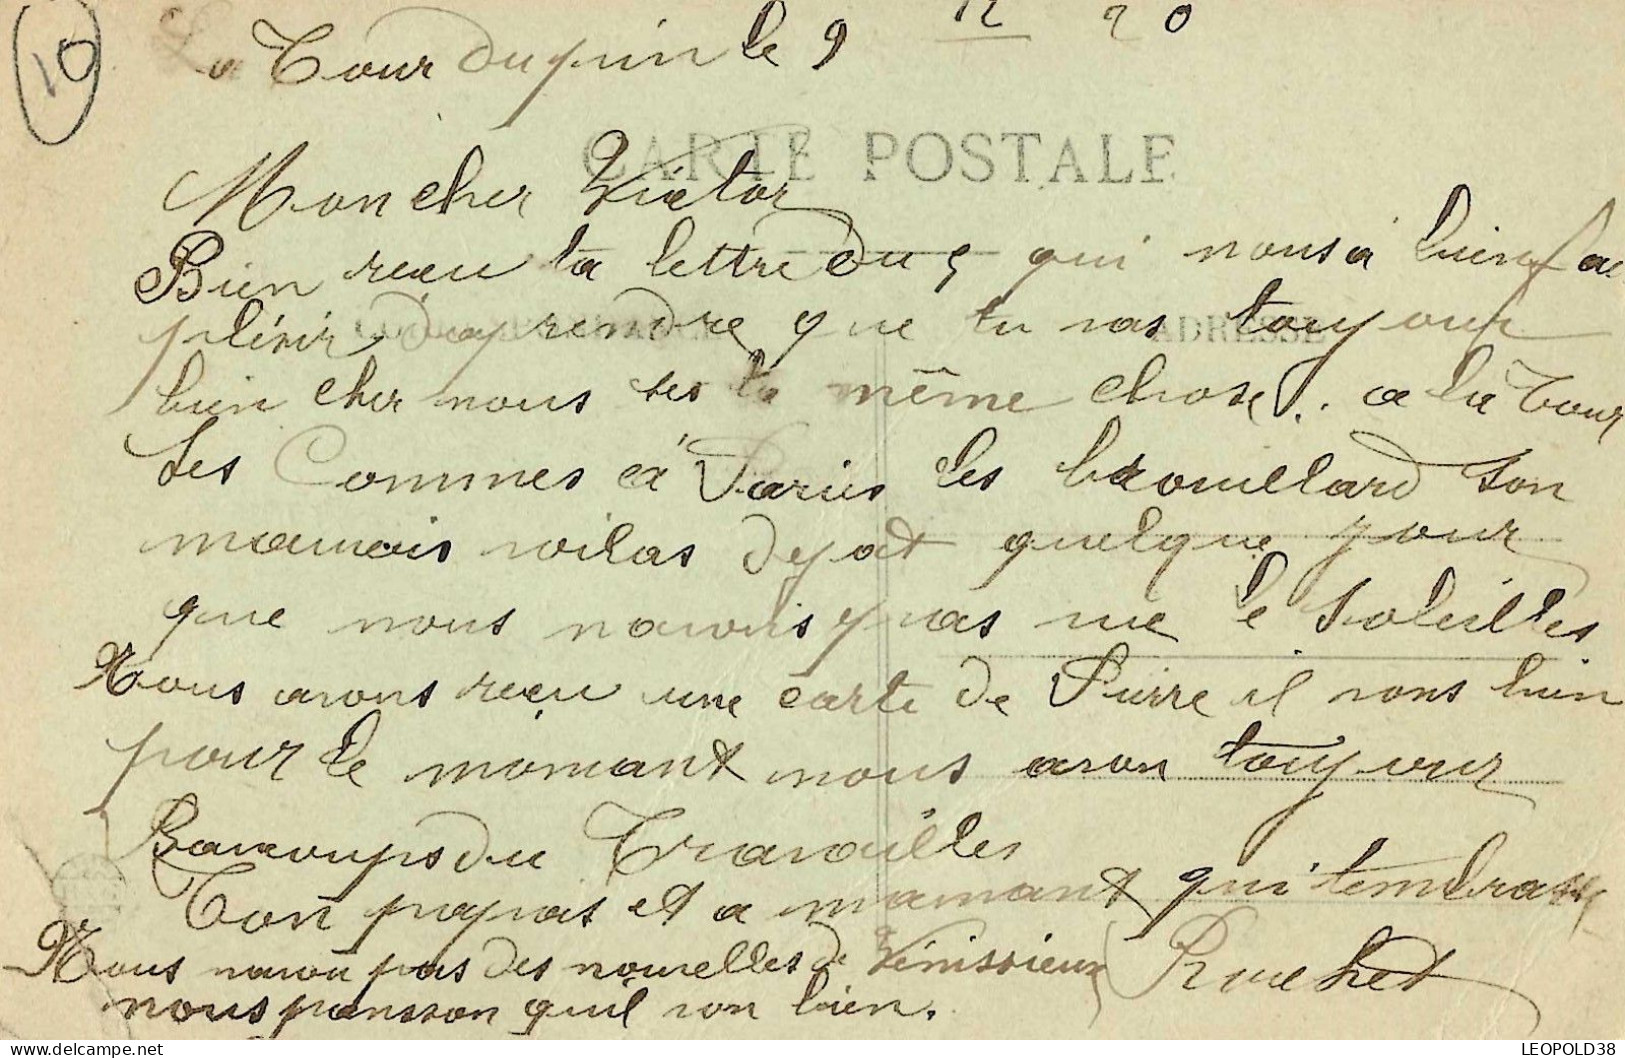 10
La Tour Du pin le 9 12 20
CARTE POSTALE
Mon cher Victor
Bien recu ta lettre du 5 qui nous a bien fai
plésir d'aprendre que tu vas toujour
ADRESSE
bien cher nous ses la même chose. a la Tour
ses Commes a Paries les brouillard son
mauvais voilas dejat quelque jour
que nous navons pas vue le soleilles
Nous avons recu une carte de Pierre il vons bien
pour le momant nous avon toujour
Baucoups du Travailles
Ton papas et a mamant qui tembrasse
Nous navon pas des nouvelles de Vénissieux Ruchet
nous pansson quil von bien.
LEOPOLD38